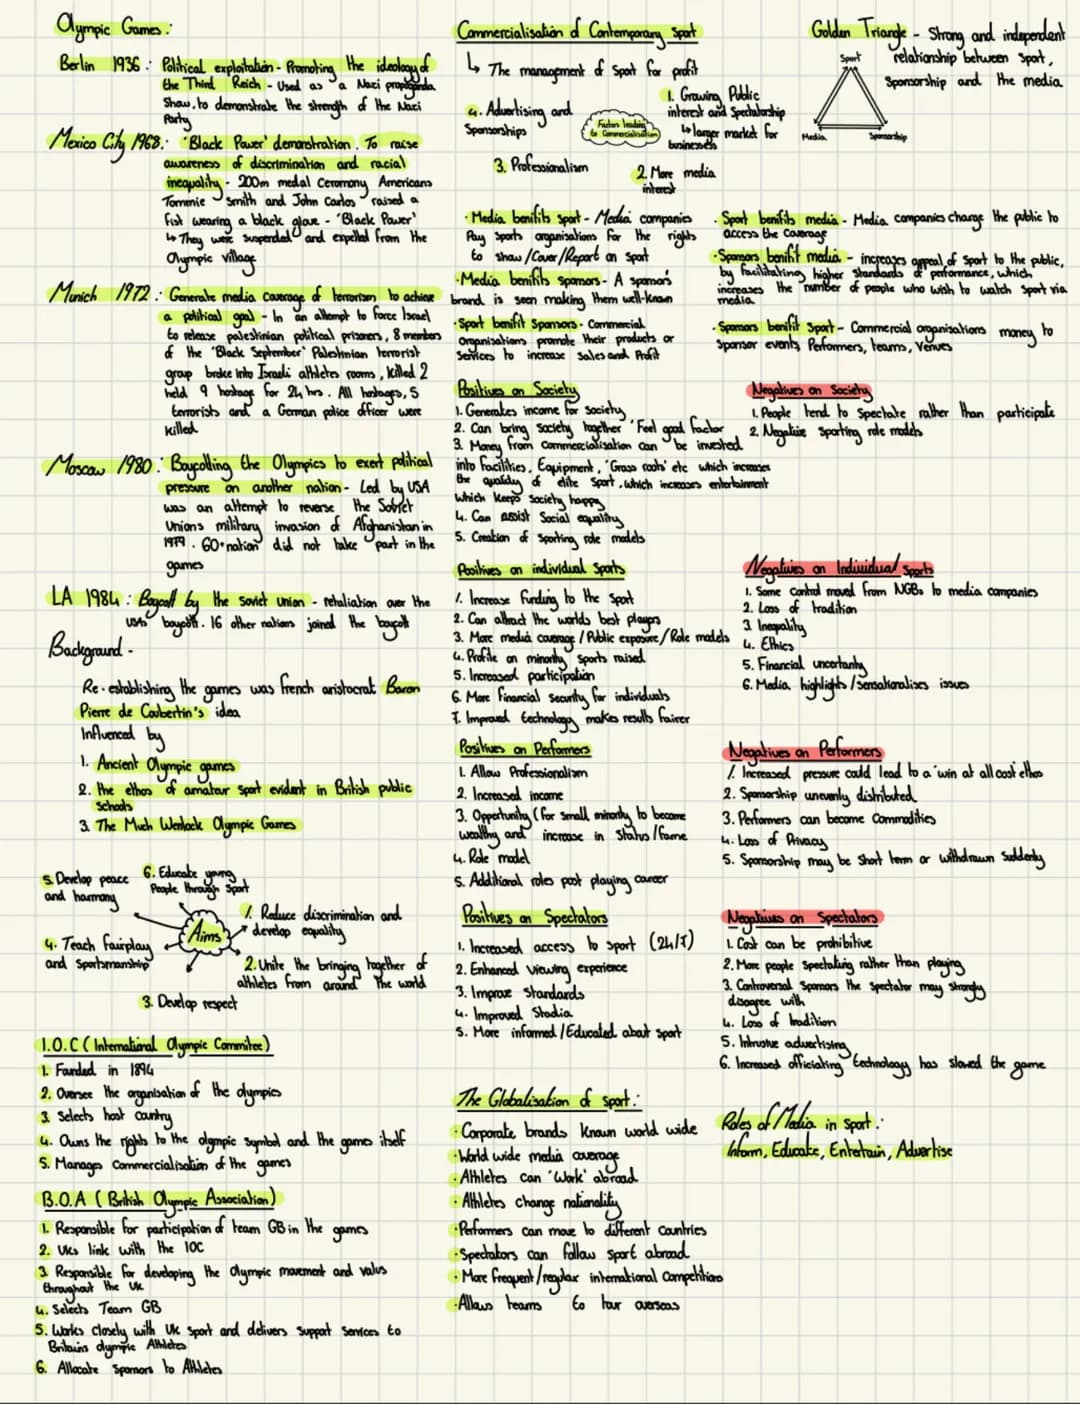 Olympic Games :
Berlin 1936 : Political exploitation - Promoting the ideology of
the Third Reich - Used as a Nazi propaganda
Show, to demonstrate the strength of the Nazi
Party
Mexico City 1968 : 'Black Power' demonstration. To raise
awareness of discrimination and racial
inequality - 200m medal Ceremony Americans
Tommie Smith and John Carlos raised a
fist wearing a black glove - 'Black Power'
↳ They were suspended and expelled from the
Olympic village
Munich 1972 : Generate media coverage of terrorism to achieve
a political goal - In an attempt to force Israel
to release palestinian political prisoners, 8 members
of the 'Black September' Palestinian terrorist
group broke into Israeli athletes rooms, killed 2
held 9 hostage for 24 hrs. All hostages, 5
terrorists and a German police officer were
killed
Moscow 1980 : Boycotting the Olympics to exert political
pressure on another nation - Led by USA
was an attempt to reverse the Soviet
Unions military invasion of Afghanistan in
1979. 60+ nation did not take part in the
games
LA 1984 : Boycott by the soviet union - retaliation over the
USAs boycott. 16 other nations joined the boycott
Background -
Re-establishing the games was french aristocrat Baron
Pierre de Coubertin's idea
Influenced by
1. Ancient Olympic games
2. the ethos of amateur sport evident in British public
Schools
3. The Much Wenlock Olympic Games
Aims
1. Reduce discrimination and
develop equality
2. Unite the bringing together of
athletes from around the world
3. Develop respect
4. Teach fairplay
and sportsmanship
5. Develop peace
and harmony
6. Educate young
People through Sport
I.O.C ( International Olympic Commitee )
1. Founded in 1894
2. Oversee the organisation of the olympics
3. Selects host country
4. Owns the rights to the olympic symbol and the games itself
5. Manages Commercialisation of the games
B.O.A ( British Olympic Association )
1. Responsible for participation of team GB in the games
2. UKs link with the IOC
3. Responsible for developing the Olympic movement and valus
throughout the UK
4. Selects Team GB
5. Works closely with UK sport and delivers support services to
Britains olympic Athletes
6. Allocate Sponsors to Athletes
Commercialisation of Contemporary Sport
↳ The management of Sport for profit
Factors leading
to Commercialisation
1. Growing Public
interest and Spectatorship
↳ larger market for
businesses
2. More media
interest
3. Professionalism
4. Advertising and
Sponsorships
Golden Triangle - Strong and independent
relationship between sport,
Sponsorship and the media
Sport
Media
Sponsorship
· Media benifits sport - Media companies
Pay sports organisations for the rights
to show / Cover / Report on sport
· Media benifits sponsors - A sponsors
brand is seen making them well-known
· Sport benifit Sponsors - Commercial
Organisations promote their products or
Services to increase sales and Profit
· Sport benifits media - Media companies charge the public to
access the coverage
· Sponsors benifit media - increases appeal of sport to the public,
by facilitating higher standards of performance, which
increases the number of people who wish to watch sport via
media
· Sponsors benifit Sport - Commercial organisations money to
Sponsor events, Performers, teams, Venues
Positives on Society
1. Generates income for Society
2. Can bring society together 'Feel good factor
3. Money from Commercialisation can be invested
into facilities, Equipment, 'Grass roots' etc which increases
the quality of elite sport, which increases entertainment
which keeps society happy
4. Can assist Social equality
5. Creation of sporting role models
Negatives on Society
1. People tend to Spectate rather than participate
2. Negative sporting role models
Positives on individual sports
1. Increase funding to the sport
2. Can attract the worlds best players
3. More media coverage / Public exposure / Role models
4. Profile on minority sports raised
5. Increased participation
6. More financial security for individuals
7. Improved technology makes results fairer
Negatives on Individual Sports
1. Some Control moved from NGBs to media companies
2. Loss of tradition
3. Inequality
4. Ethics
5. Financial uncertanty
6. Media highlights / sensationalises issues
Positives on Performers
1. Allow Professionalism
2. Increased income
3. Opportunity (for small minority to become
wealthy and increase in status / fame
4. Role model
5. Additional roles post playing career
Negatives on Performers
1. Increased pressure could lead to a 'win at all cost' ethos
2. Sponsorship unevenly distributed
3. Performers can become Commodities
4. Loss of Privacy
5. Sponsorship may be Short term or withdrawn Suddenly
Positives on Spectators
1. Increased access to sport (24/7)
2. Enhanced viewing experience
3. Improve Standards
4. Improved Stadia
5. More informed / Educated about sport
Negatives on Spectators
1. Cost can be prohibitive
2. More people Spectating rather than playing
3. Controversal Sponsors the spectator may strongly
disagree with
4. Loss of tradition
5. Intrusive advertising
6. Increased officiating technology has slowed the game
The Globalisation of sport :
· Corporate brands known world wide
· World wide media coverage
· Athletes can 'Work' abroad
· Athletes change nationality
· Performers can move to different countries
· Spectators can follow sport abroad
· More frequent / regular international Competitions
· Allows teams to tour overseas
Roles of Media in sport :
Inform, Educate, Entertain, Advertise